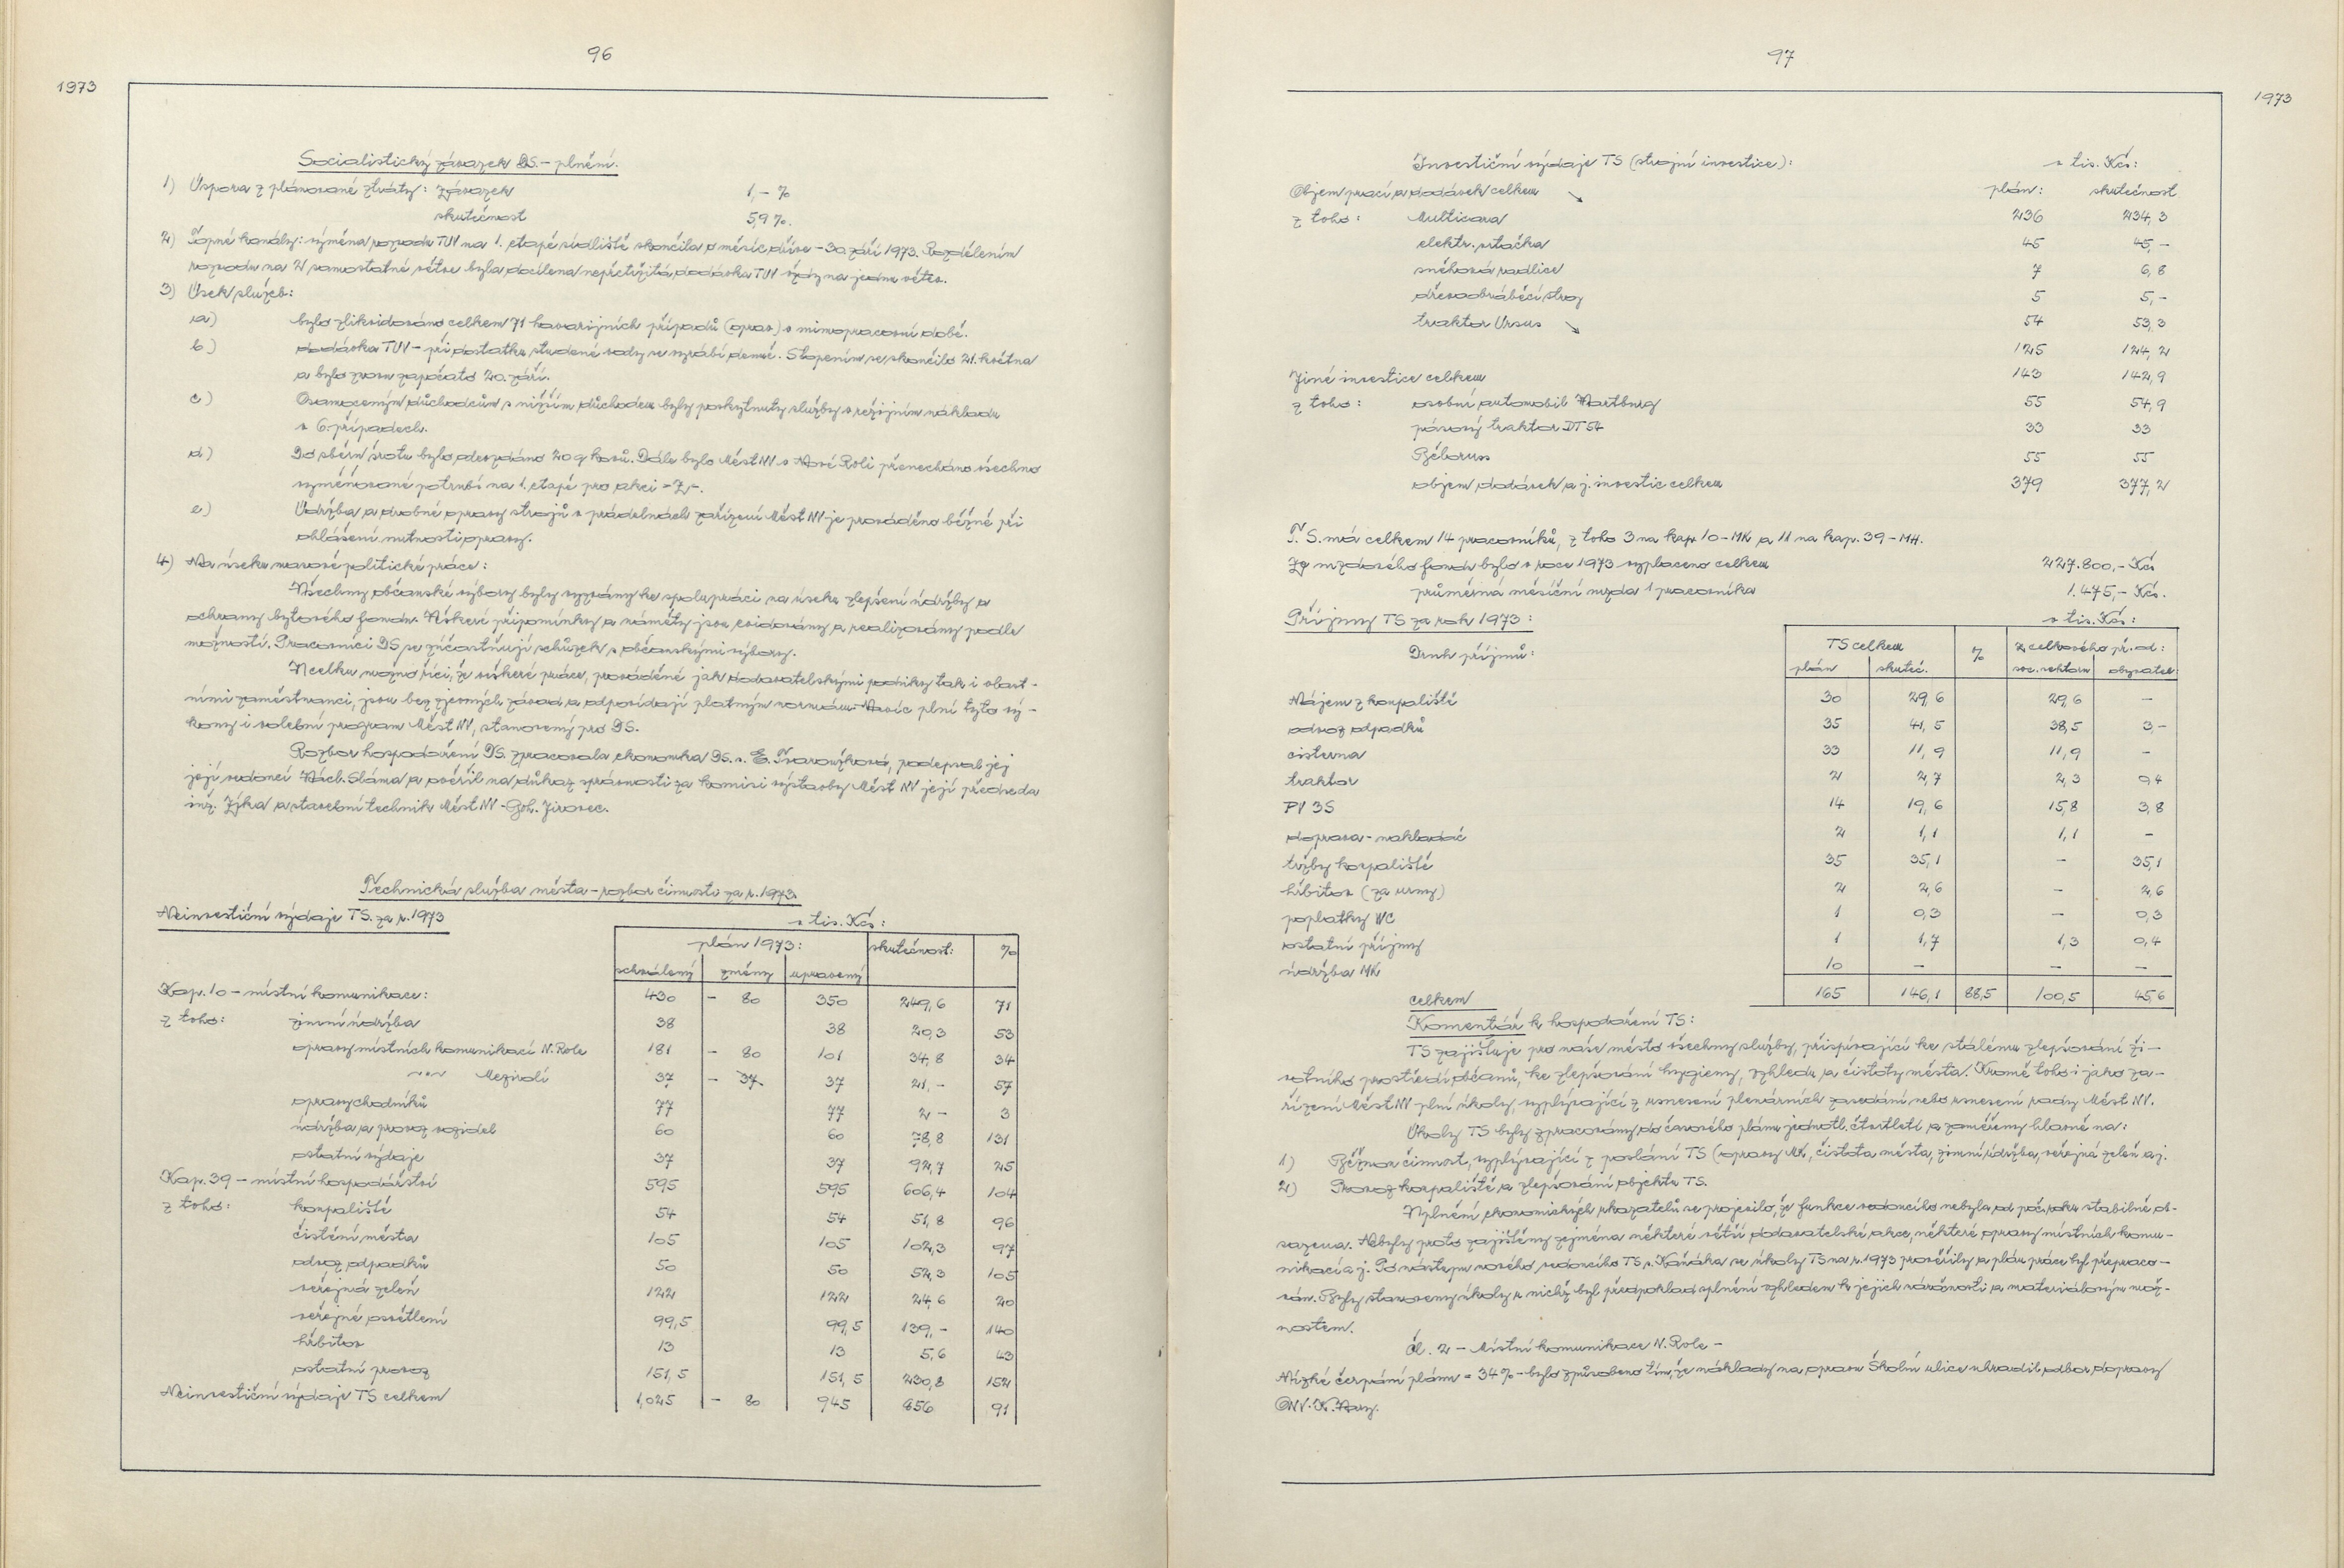 96
1973
Socialistický závazek DS. - plnění.
1) Úspora z plánované ztráty: závazek 1,- %
skutečnost 5,9 %.
2) Topné kanály: výměna rozvodu TUV na 1. etapě sídliště skončila o měsíc dříve - 30. září 1973. Rozdělením
rozvodu na 2 samostatné větve byla docílena nepřetržitá dodávka TUV vždy na jednu větev.
3) Úsek služeb:
a) bylo zlikvidováno celkem 71 havarijních případů (oprav) v mimopracovní době.
b) dodávka TUV - při dostatku studené vody se vyrábí denně. S topením se skončilo 21. května
a bylo znovu započato 20. září.
c) Osamoceným důchodcům s nižším důchodem byly poskytnuty služby v režijním nákladu
v 6. případech.
d) Do sběru šrotu bylo odevzdáno 20 q kovů. Dále bylo Měst NV v Nové Roli přenecháno všechno
vyměňované potrubí na 1. etapě pro akci "Z".
e) Údržba a drobné opravy strojů v prádelnách zařízení Měst NV je prováděno běžně při
ohlášení nutnosti opravy.
4) Na úseku masově politické práce:
Všechny občanské výbory byly vyzvány ke spolupráci na úseku zlepšení údržby a
ochrany bytového fondu. Veškeré připomínky a náměty jsou evidovány a realizovány podle
možností. Pracovníci DS se zúčastňují schůzek s občanskými výbory.
V celku možno říci, že veškeré práce, prováděné jak dodavatelskými podniky tak i vlast-
ními zaměstnanci, jsou bez zjevných závad a odpovídají platným normám. Navíc plní tyto vý-
kony i volební program Měst NV, stanovený pro DS.
Rozbor hospodaření DS. zpracovala ekonomka DS. s. E. Tvaroužková, podepsal jej
její vedoucí Václ. Sláma a ověřil na důkaz správnosti za komisi výstavby Měst NV její předseda
inž. Zýka a stavební technik Měst NV - Boh. Jirovec.
Technická služba města - rozbor činnosti za r. 1973.
Neinvestiční výdaje TS. za r. 1973
v tis. Kčs:
plán 1973: skutečnost: %
schválený změny upravený
Kap. 10 - místní komunikace: 430 - 80 350 249,6 71
z toho: zimní údržba 38 38 20,3 53
opravy místních komunikací N. Role 181 - 80 101 34,8 34
-"- Mezirolí 37 - 37 37 21,- 57
opravy chodníků 77 77 2 - 3
údržba a provoz vozidel 60 60 78,8 131
ostatní výdaje 37 37 92,7 25
Kap. 39 - místní hospodářství 595 595 606,4 104
z toho: koupaliště 54 54 51,8 96
čistění města 105 105 102,3 97
odvoz odpadků 50 50 52,3 105
veřejná zeleň 122 122 24,6 20
veřejné osvětlení 99,5 99,5 139,- 140
hřbitov 13 13 5,6 43
ostatní provoz 151,5 151,5 230,8 152
Neinvestiční výdaje TS celkem 1,025 - 80 945 856 91
97
1973
Investiční výdaje TS (strojní investice): v tis. Kčs:
Objem prací a dodávek celkem plán: skutečnost
z toho: Multicara 236 234,3
elektr. vrtačka 45 45,-
sněhová radlice 7 6,8
dřevoobráběcí stroj 5 5,-
traktor Ursus 54 53,3
125 124,2
Jiné investice celkem 143 142,9
z toho: osobní automobil Wartburg 55 54,9
pásový traktor DT 54 33 33
Běloruss 55 55
objem dodávek a j. investic celkem 379 377,2
T. S. má celkem 14 pracovníků, z toho 3 na kap. 10 - MK a 11 na kap. 39 - MH.
Ze mzdového fondu bylo v roce 1973 vyplaceno celkem 227.800,- Kčs
průměrná měsíční mzda 1 pracovníka 1.475,- Kčs.
Příjmy TS za rok 1973: v tis. Kčs:
Druh příjmů: TS celkem % z celkového př. od:
plán skuteč. soc. sektoru obyvatel
Nájem z koupaliště 30 29,6 29,6 -
odvoz odpadků 35 41,5 38,5 3,-
cisterna 33 11,9 11,9 -
traktor 2 2,7 2,3 0,4
PV 3S 14 19,6 15,8 3,8
doprava - nakladač 2 1,1 1,1 -
tržby koupaliště 35 35,1 - 35,1
hřbitov (za urny) 2 2,6 - 2,6
poplatky WC 1 0,3 - 0,3
ostatní příjmy 1 1,7 1,3 0,4
údržba MK 10 - - -
celkem 165 146,1 88,5 100,5 45,6
Komentář k hospodaření TS:
TS zajišťuje pro naše město všechny služby, přispívající ke stálému zlepšování ži-
votního prostředí občanů, ke zlepšování hygieny, vzhledu a čistoty města. Kromě toho i jako za-
řízení Měst NV plní úkoly, vyplývající z usnesení plenárních zasedání nebo usnesení rady Měst NV.
Úkoly TS byly zpracovány do časového plánu jednotl. čtvrtletí a zaměřeny hlavně na:
1) Běžnou činnost, vyplývající z poslání TS (opravy MK, čistota města, zimní údržba, veřejná zeleň aj.
2) Provoz koupaliště a zlepšování objektu TS.
V plnění ekonomických ukazatelů se projevilo, že funkce vedoucího nebyla od poč. roku stabilně ob-
sazena. Nebyly proto zajištěny zejména některé větší dodavatelské akce, některé opravy místních komu-
nikací a j. Po nástupu nového vedoucího TS s. Kaňáka se úkoly TS na r. 1973 prověřily a plán práce byl přepraco-
ván. Byly stanoveny úkoly u nichž byl předpoklad splnění vzhledem k jejich náročnosti a materiálovým mož-
nostem.
čl. 2 - Místní komunikace N. Role -
Nízké čerpání plánu = 34 % - bylo způsobeno tím, že náklady na opravu Školní ulice uhradil odbor dopravy
ONV. K. Vary.